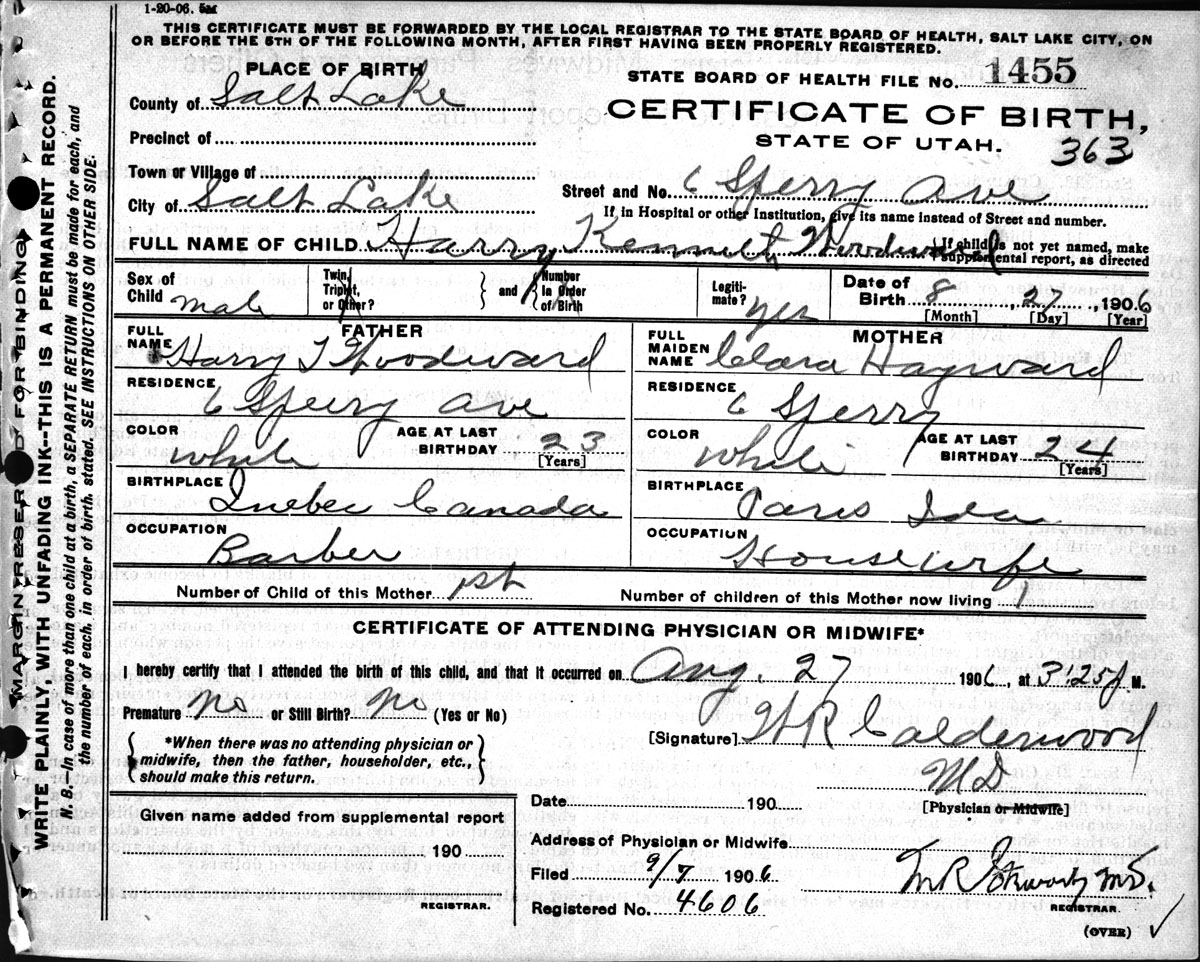 1-20-06. 5M
THIS CERTIFICATE MUST BE FORWARDED BY THE LOCAL REGISTRAR TO THE STATE BOARD OF HEALTH, SALT LAKE CITY, ON
OR BEFORE THE 5TH OF THE FOLLOWING MONTH, AFTER FIRST HAVING BEEN PROPERLY REGISTERED.
PLACE OF BIRTH
STATE BOARD OF HEALTH FILE No. 1455
County of Salt Lake
CERTIFICATE OF BIRTH,
Precinct of
STATE OF UTAH. 363
Town or Village of
Street and No. 6 Sperry Ave
City of Salt Lake
If in Hospital or other Institution, give its name instead of Street and number.
FULL NAME OF CHILD Harry Kenneth Woodward
If child is not yet named, make
supplemental report, as directed
Sex of Child male
Twin, Triplet, or Other?
and Number in Order of Birth
Legitimate? yes
Date of Birth 8, 27, 1906
[Month] [Day] [Year]
FATHER
FULL NAME Harry T Woodward
RESIDENCE 6 Sperry Ave
COLOR White
AGE AT LAST BIRTHDAY 23
[Years]
BIRTHPLACE Quebec Canada
OCCUPATION Barber
MOTHER
FULL MAIDEN NAME Clara Hayward
RESIDENCE 6 Sperry
COLOR White
AGE AT LAST BIRTHDAY 24
[Years]
BIRTHPLACE Paris Ida
OCCUPATION Housewife
Number of Child of this Mother 1st
Number of children of this Mother now living 1
CERTIFICATE OF ATTENDING PHYSICIAN OR MIDWIFE*
I hereby certify that I attended the birth of this child, and that it occurred on Aug. 27 1906, at 3:25 P M.
Premature No or Still Birth? No (Yes or No)
*When there was no attending physician or
midwife, then the father, householder, etc.,
should make this return.
[Signature] W R Calderwood
MD
[Physician or Midwife]
Given name added from supplemental report
190
REGISTRAR.
Date 190
Address of Physician or Midwife
Filed 9/7 1906
Registered No. 4606
M.D.
REGISTRAR.
(OVER)
MARGIN RESERVED FOR BINDING
WRITE PLAINLY, WITH UNFADING INK--THIS IS A PERMANENT RECORD.
N. B. In case of more than one child at a birth, a SEPARATE RETURN must be made for each, and
the number of each, in order of birth, stated. SEE INSTRUCTIONS ON OTHER SIDE.